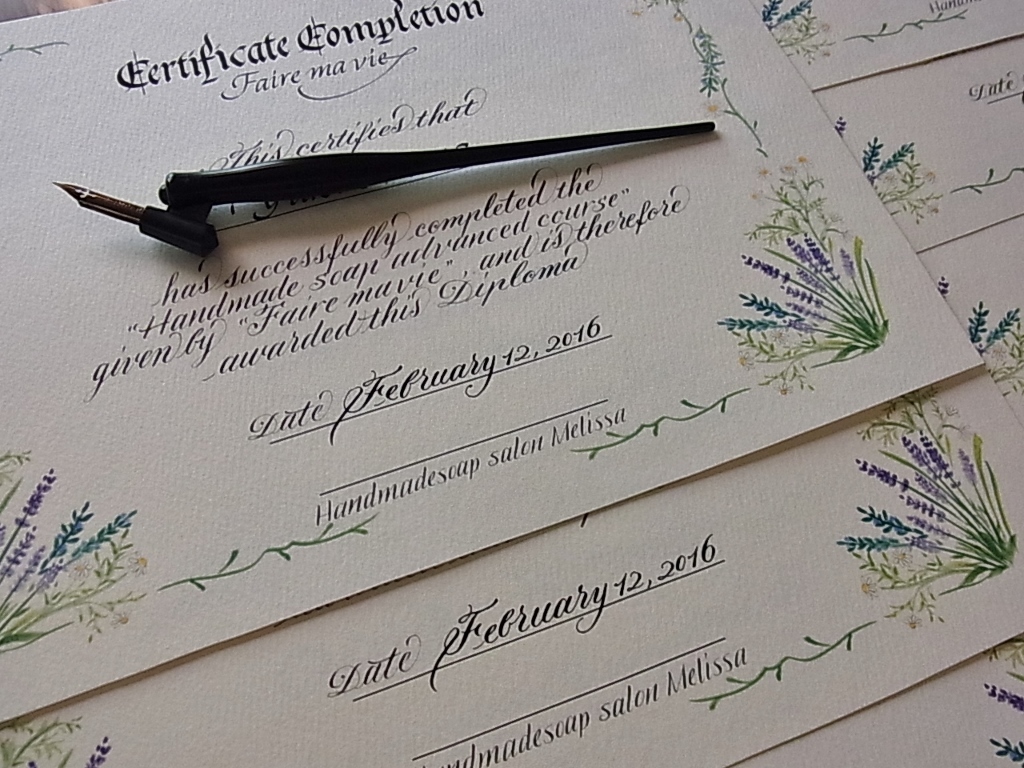 Certificate Completion
Faire ma vie
This certifies that
has successfully completed the
"Handmade soap advanced course"
given by "Faire ma vie", and is therefore
awarded this Diploma
Date February 12, 2016
Handmadesoap salon Melissa
Date February 12, 2016
ndmadesoap salon Melissa
Date
Handm